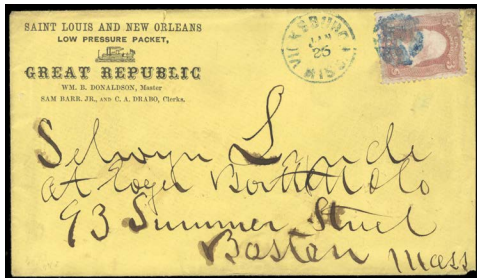 SAINT LOUIS AND NEW ORLEANS
LOW PRESSURE PACKET,
GREAT REPUBLIC
WM. B. DONALDSON, Master
SAM BARR. JR., AND C. A. DRABO, Clerks.
VICKSBURG
JAN
25
MISS
Selwyn
at
93 Summer Street
Boston Mass